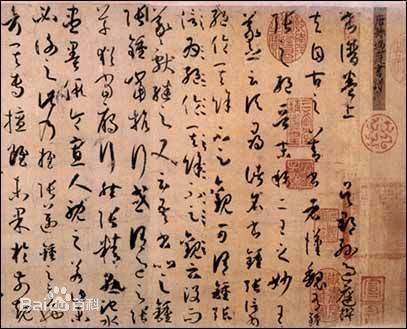 唐孫過庭書譜
書譜卷上 吳郡孫過庭撰
夫自古之善書者漢魏有鍾
張之絕晉末稱二王之妙王
羲之云頃尋諸名書鍾張信為
絕倫其餘不足觀可謂鍾張
信為絕倫其餘不足觀云沒而
羲獻繼之又云吾書比之鍾
張鍾當抗行或謂過之張
草猶當雁行然張精熟池水
盡墨假令寡人耽之若此
未必謝之此乃推張邁鍾之意
也考其專擅雖未果於前規
Baidu百科